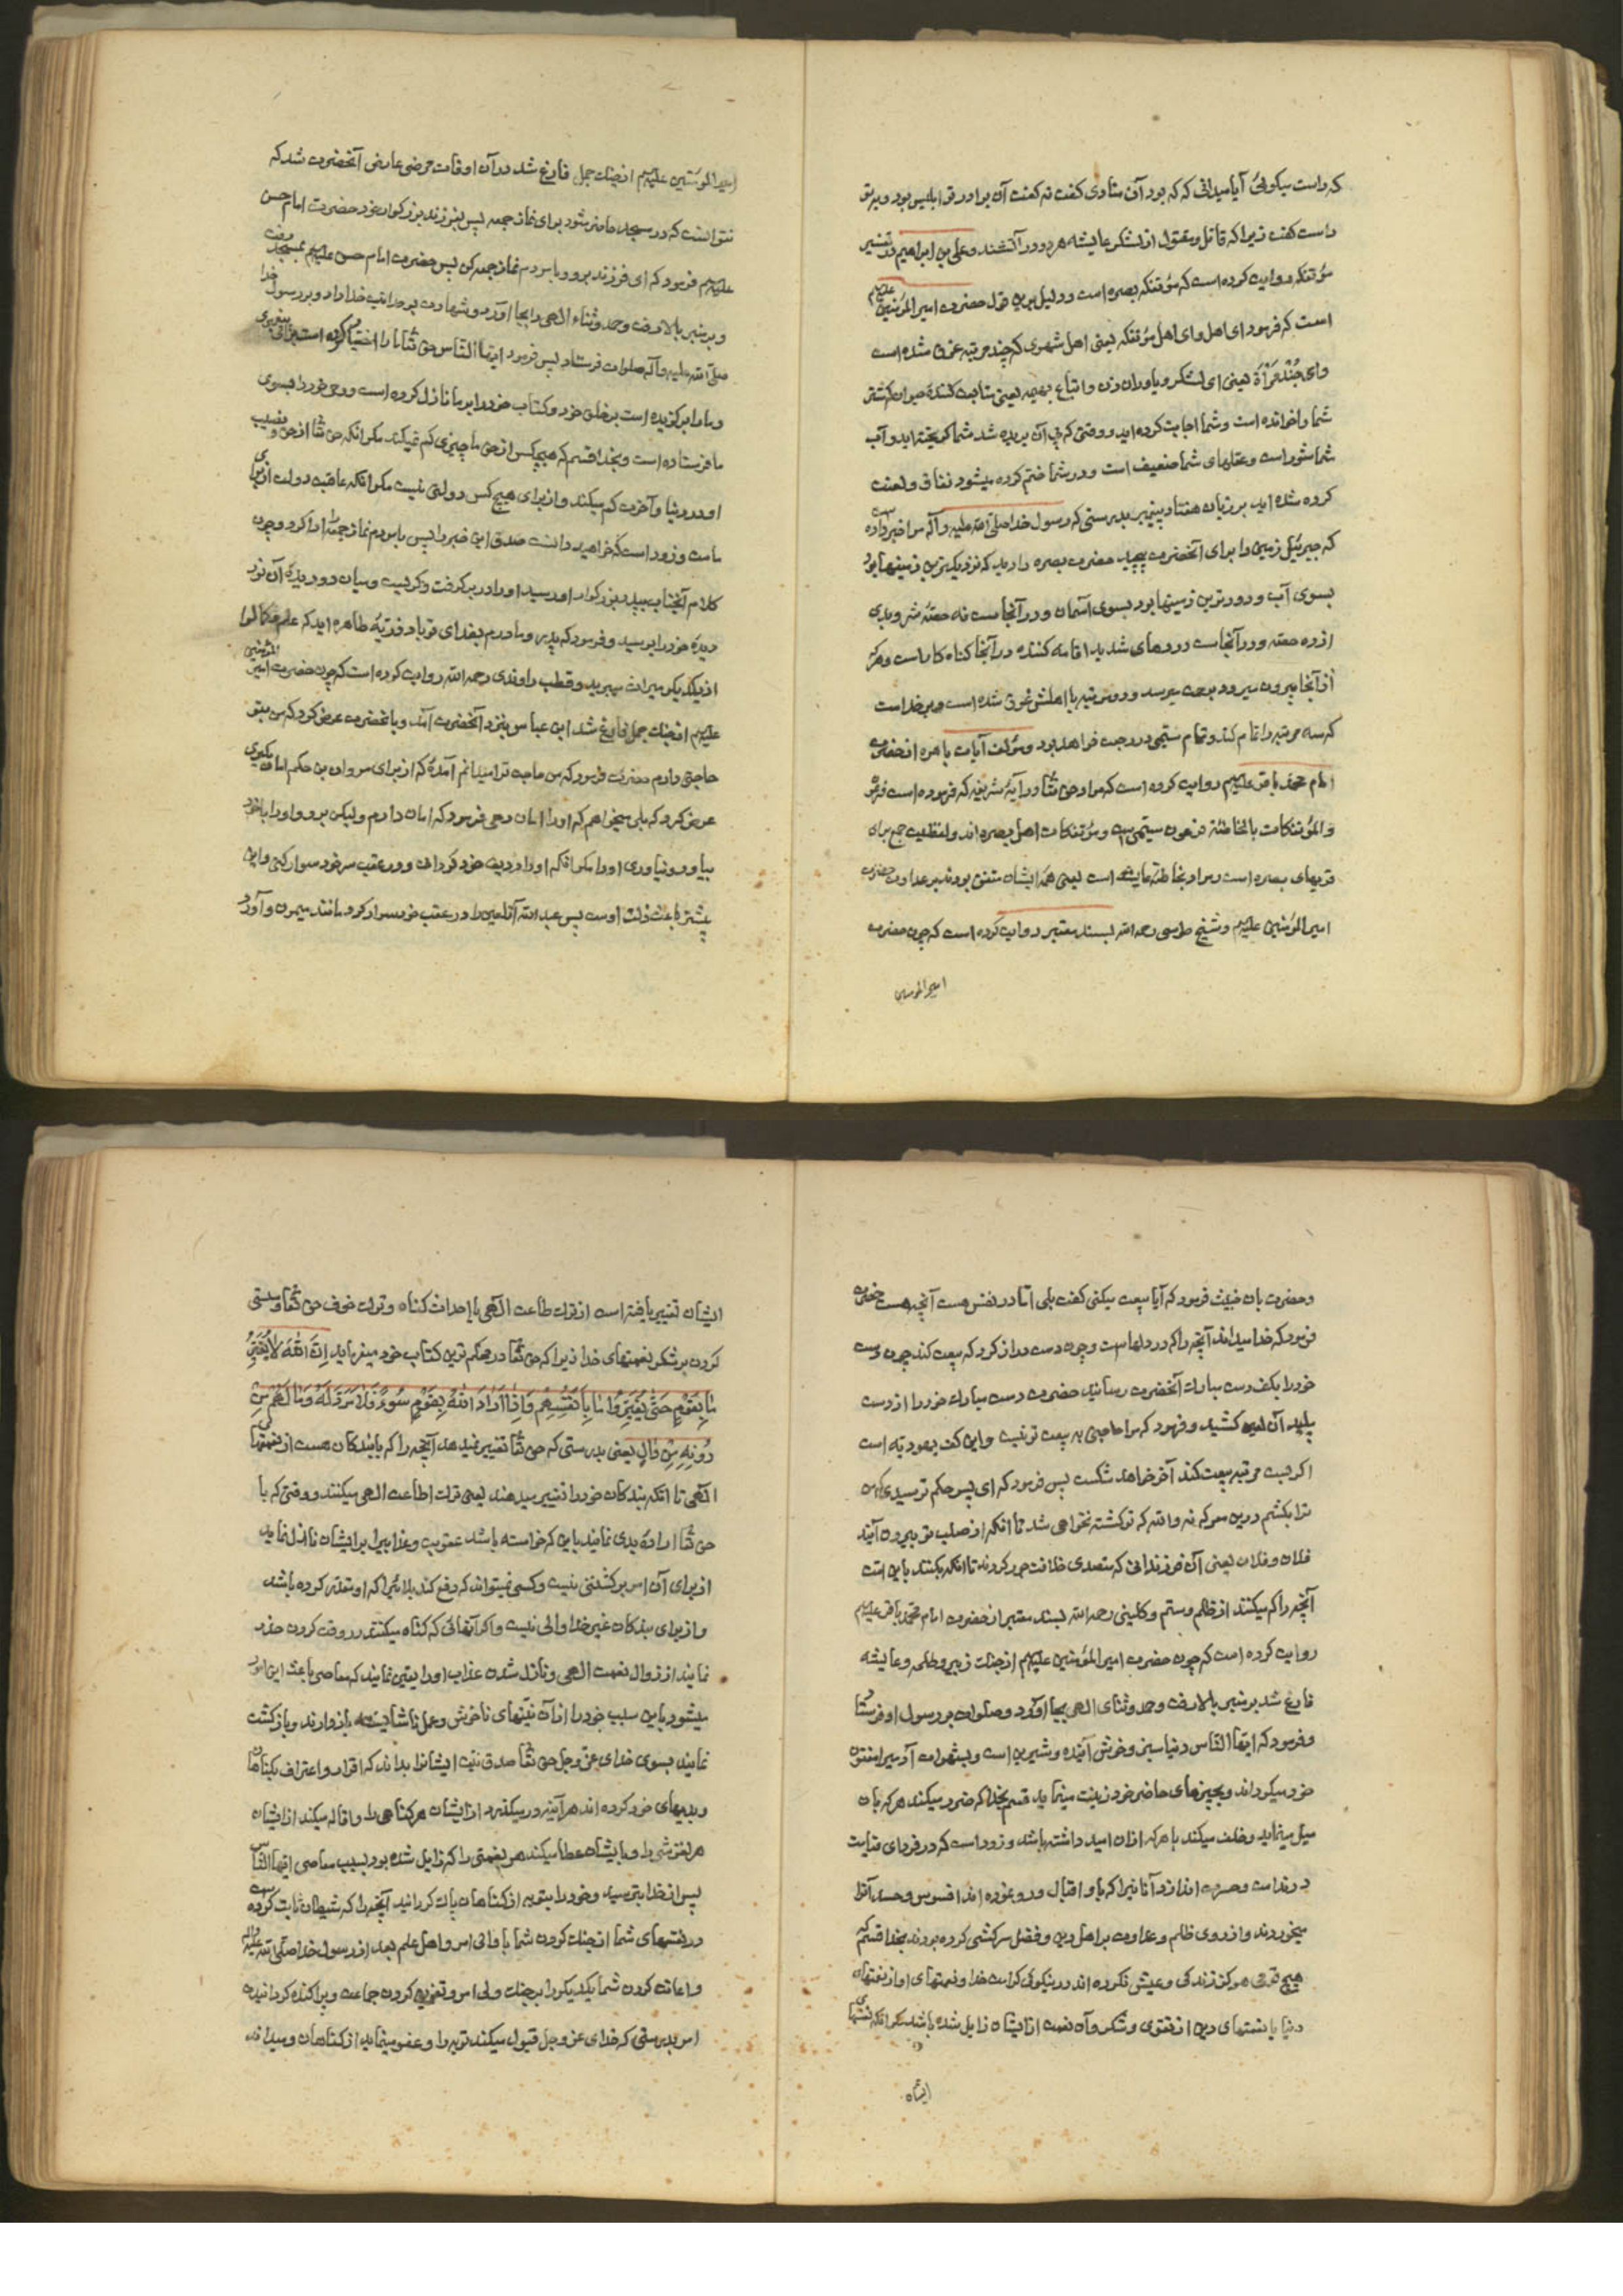 که راست میکوئی آیا میدانی که که بود آن منادی کفت نه کفت آن برادر تو ابلیس بود و بر تو
راست کفت زیرا که قاتل و مقتول از لشکر عایشه هر دو در آتشند و علی بن ابراهیم در تفسیر
مؤتفکه روایت کرده است که مؤتفکه بصره است و دلیل برین قول حضرت امیر المؤمنین علیه‌السلم
است که فرمود ای اهل و ای اهل مؤتفکه یعنی اهل شهری که چند مرتبه غرق شده است
و ای جند مرأة یعنی ای لشکر و یاوران زن و اتباع بهیمه یعنی متابعت کنندهٔ حیوان که شتر
شما را خوانده است و شما اجابت کرده اید و وقتی که پی آن بریده شد شما کریخته اید و آب
شما شور است و عقلهای شما ضعیف است و در شما ختم کرده میشود نفاق و لعنت
کرده شده اید بر زبان هفتاد پیغمبر بدرستی که رسول خدا صلی الله علیه و آله مرا خبر داده است
که جبرئیل زمین را برای آنحضرت پیچید حضرت بصره را دید که نزدیکترین زمینها بود
بسوی آب و دورترین زمینها بود بسوی آسمان و در آنجاست نه حصّهٔ شر و بدی
از ده حصّه و در آنجاست دردهای شدید اقامه کننده در آنجا کناه کار است و هر که
از آنجا بیرون میرود برحمت میرسد و دو مرتبه با اهلش غرق شده است و بر خداست
که سه مرتبه را تمام کند و تمام سیمی در رجعت خواهد بود و مؤلف آیات باهره از حضرت
امام محمد باقر علیه‌السلم روایت کرده است که مراد حق تعالی در آیهٔ شریفه که فرموده است فرعون
و المؤتفکات بالخاطئة فرعون سیمی است و مؤتفکات اهل بصره اند و لفظیت جمع برای
قریهای بصره است و مراد بخاطئه عایشه است یعنی همهٔ ایشان متفق بودند بر عداوت حضرت
امیر المؤمنین علیه‌السلم و شیخ طوسی رحمه الله بسند معتبر روایت کرده است که چون حضرت
امیر المومنین
امیر المؤمنین علیه‌السلم از جنک جمل فارغ شد در آن اوقات مرضی عارض آنحضرت شد که
نتوانست که در مسجد حاضر شود برای نماز جمعه پس بفرزند بزرکوار خود حضرت امام حسن
علیه‌السلم فرمود که ای فرزند برو و با مردم نماز جمعه کن پس حضرت امام حسن علیه‌السلم بمسجد رفت
و بر منبر بالا رفت و حمد و ثناء الهی را بجا آورد و شهادت بوحدانیت خدا داد و بر رسول خدا
صلی الله علیه و آله صلوات فرستاد پس فرمود ایها الناس حق تعالی ما را اختیار کرده است برای پیغمبری
و ما را برکزیده است بر خلق خود و کتاب خود را بر ما نازل کرده است و وحی خود را بسوی
ما فرستاده است و بخدا قسم که هیچکس از حق ما چیزی کم نمیکند مکر آنکه حق تعالی از حق و نصیب
او در دنیا و آخرت کم میکند و از برای هیچ کس دولتی نیست مکر آنکه عاقبت دولت از برای
ماست و زود است که خواهید دانست صدق این خبر را پس با مردم نماز جمعه را ادا کرد و چون
کلام آنجناب بپدر بزرکوار او رسید او را در بر کرفت و کریست و میان دو دیدهٔ آن نور
دیدهٔ خود را بوسید و فرمود که پدر و مادرم بفدای تو باد ذریّهٔ طاهره اید که علم و کمال را
از یکدیکر میراث میبرید و قطب راوندی رحمه الله روایت کرده است که چون حضرت امیر المؤمنین
علیه‌السلم از جنک جمل فارغ شد ابن عباس بنزد آنحضرت آمد و بآنحضرت عرض کرد که من بتو
حاجتی دارم حضرت فرمود که من حاجت ترا میدانم آمدهٔ که از برای مروان بن حکم امان بکیری
عرض کرد که بلی میخواهم که او را امان دهی فرمود که امان دادم ولیکن برو و او را با خود
بیاور و نیاوری او را مکر آنکه او را ردیف خود کردانی و در عقب سر خود سوار کنی و این
بیشتر باعث ذلت اوست پس عبد الله آنلعین را در عقب خود سوار کرد مانند میمون و آورد
و حضرت بان خبیث فرمود که آیا بیعت میکنی کفت بلی اما در نفس هست آنچه هست حضرت
فرمود که خدا میداند آنچه را که در دلهاست و چون دست دراز کرد که بیعت کند چون دست
خود را بکف دست مبارک آنحضرت رسانید حضرت دست مبارک خود را از دست
پلید آن لعین کشید و فرمود که مرا حاجتی به بیعت تو نیست و این کف یهودیه است
اکر بیست مرتبه بیعت کند آخر خواهد شکست پس فرمود که ای پسر حکم ترسیدی که من
ترا بکشم درین معرکه نه والله که تو کشته نخواهی شد تا آنکه از صلب تو بیرون آیند
فلان و فلان یعنی آن فرزندانی که متصدی خلافت جور کردند تا آنکه بکنند باین امت
آنچه را که میکنند از ظلم و ستم و کلینی رحمه الله بسند معتبر از حضرت امام محمد باقر علیه‌السلم
روایت کرده است که چون حضرت امیر المؤمنین علیه‌السلم از جنک زبیر و طلحه و عایشه
فارغ شد بر منبر بالا رفت و حمد و ثنای الهی بجا آورد و صلوات بر رسول او فرستاد
و فرمود که ایها الناس دنیا سبز و خوش آینده و شیرین است و بشهوات آدمیرا مفتون
خود میکرداند و بچیزهای حاضر خود زینت مینماید قسم بخدا که ضرر میکند هر که بان
میل مینماید و خلف میکند با هر که از ان امید داشته باشد و زود است که در فردای قیامت
در ندامت و حسرت اندازد آنانیرا که باو اقبال و رو نموده اند افسوس و حسد آنرا
میخوردند و از روی ظلم و عداوت بر اهل دین و فضل سرکشی کرده بودند بخدا قسم که
هیچ قوم هرکز زندکی و عیش نکرده اند در نیکوئی کرامت خدا و نعمتهای او از نعمتهای
دنیا یا نعمتهای دین از تقوی و شکر و آن نعمت از ایشان زایل شده باشد مکر آنکه نفسهای
ایشان
ایشان تغییر یافته است از ترک طاعت الهی یا احداث کناه و ترک خوف حق تعالی و سستی
کردن بر شکر نعمتهای خدا زیرا که حق تعالی در محکم ترین کتاب خود میفرماید اِنَّ اللّهَ لا یُغَیِّرُ
ما بِقَوْمٍ حَتّی یُغَیِّرُوا ما بِاَنْفُسِهِمْ وَ اِذا اَرادَ اللّهُ بِقَوْمٍ سُوءً فَلا مَرَدَّ لَهُ وَ ما لَهُمْ مِنْ
دُونِهِ مِنْ والٍ یعنی بدرستی که حق تعالی تغییر نمیدهد آنچه را که با بندکان هست از نعمتهای
الهی تا آنکه بندکان خود را تغییر میدهند یعنی ترک اطاعت الهی میکنند و وقتی که با
حق تعالی ارادهٔ بدی نمایند باین که خواسته باشد عقوبت و عذابیرا بر ایشان نازل نماید
از برای آن امر برکشتنی نیست و کسی نمیتواند که دفع کند بلائیرا که او مقدر کرده باشد
و از برای بندکان غیر خدا والی نیست و اکر آنهائی که کناه میکنند در وقت کردن حذر
نمایند از زوال نعمت الهی و نازل شدن عذاب او را یقین نمایند که معاصی باعث این امور
میشود باین سبب خود را از آن نیتهای ناخوش و عمل ناشایسته باز دارند و بازکشت
نمایند بسوی خدای عز و جل حق تعالی صدق نیت ایشانرا بداند که اقرار و اعتراف بکناهان
و بدیهای خود کرده اند هر آینه در میکذرد از ایشان هر کناهی را و اقاله میکند از ایشان
هر لغزشی را و بایشان عطا میکند هر نعمتی را که زایل شده بود بسبب معاصی ایها الناس
پس از خدا بترسید و خود را بتوبه از کناهان پاک کردانید آنچه را که شیطان ثابت کرده است
در نفسهای شما از جنک کردن شما با والی امر و اهل علم بعد از رسول خدا صلی الله علیه و آله
و اعانت کردن شما یکدیکر را بر جنک ولی امر و تفریق کردن جماعت و پراکنده کردانیدن
امر بدرستی که خدای عز و جل قبول میکند توبه را و عفو مینماید از کناهان و میداند